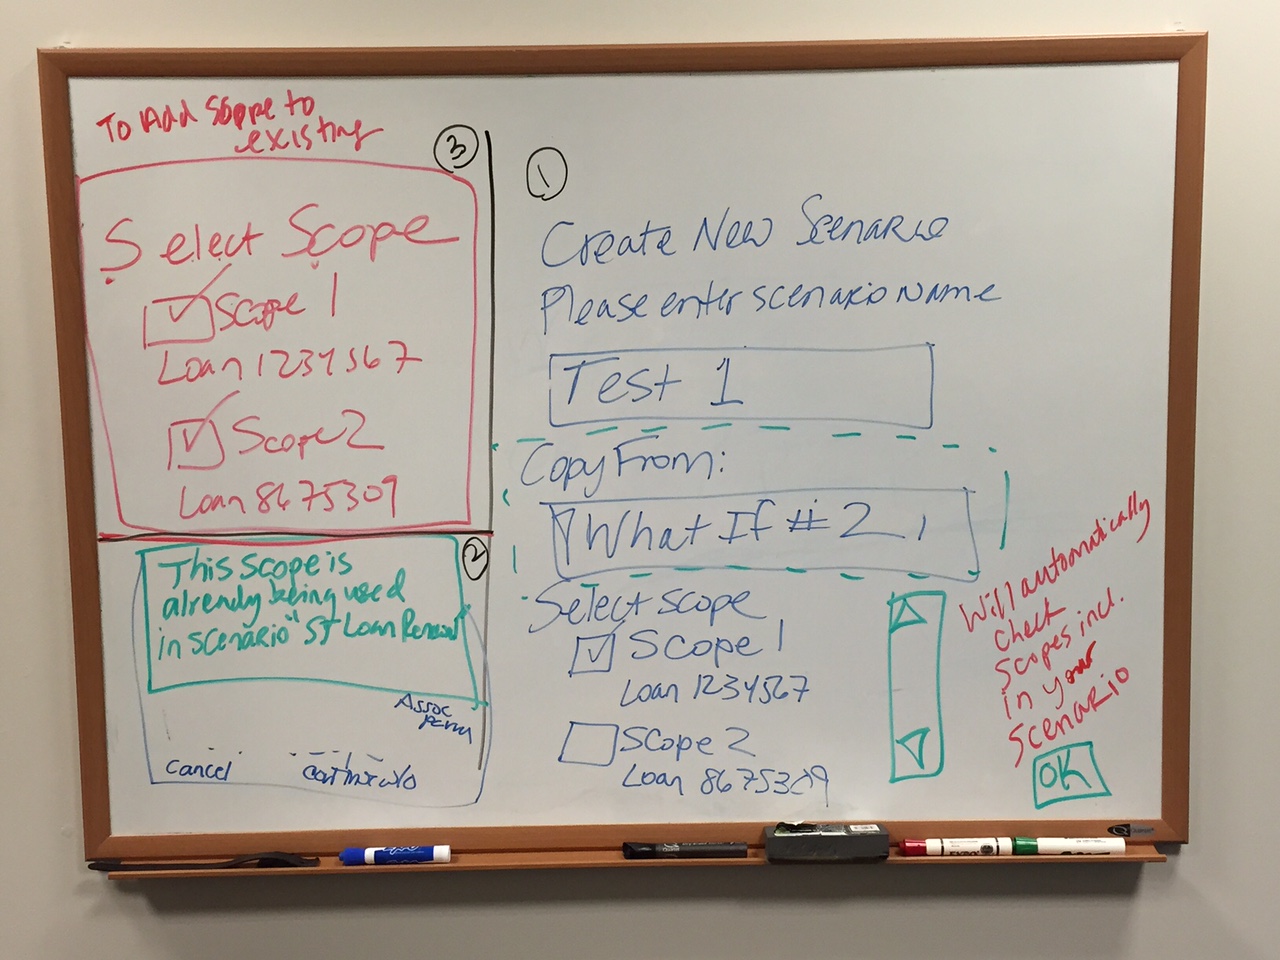 To Add Scope to
existing
3
Select Scope
Scope 1
Loan 1234567
Scope 2
Loan 8675309
2
This scope is
already being used
in scenario "ST Loan
Assoc
cancel
continue w/o
1
Create New Scenario
Please enter scenario name
Test 1
Copy From:
What If #2
Select scope
Scope 1
Loan 1234567
Scope 2
Loan 8675309
Will automatically
check
scopes incl.
in your
scenario
OK
EXPO